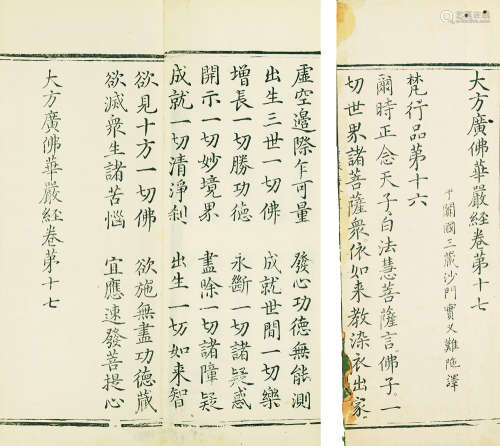 大方廣佛華嚴經卷第十七
于闐國三藏沙門實叉難陁譯
梵行品第十六
爾時正念天子白法慧菩薩言佛子一
切世界諸菩薩衆依如来教染衣出家
虛空邊際乍可量 發心功德無能測
出生三世一切佛 成就世間一切樂
增長一切勝功德 永斷一切諸疑惑
開示一切妙境界 盡除一切諸障疑
成就一切清淨刹 出生一切如来智
欲見十方一切佛 欲施無盡功德藏
欲滅衆生諸苦惱 宜應速發菩提心
大方廣佛華嚴經卷第十七